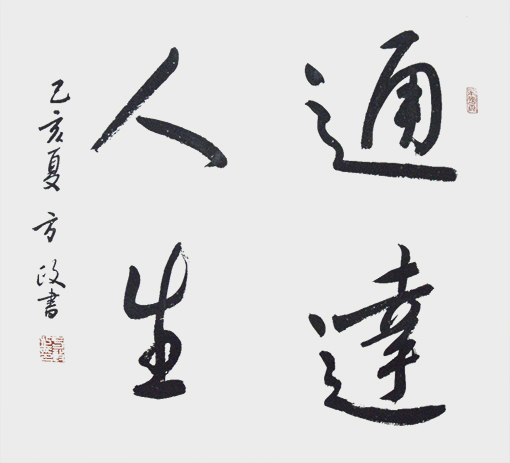 通達
人生
己亥夏 方政書